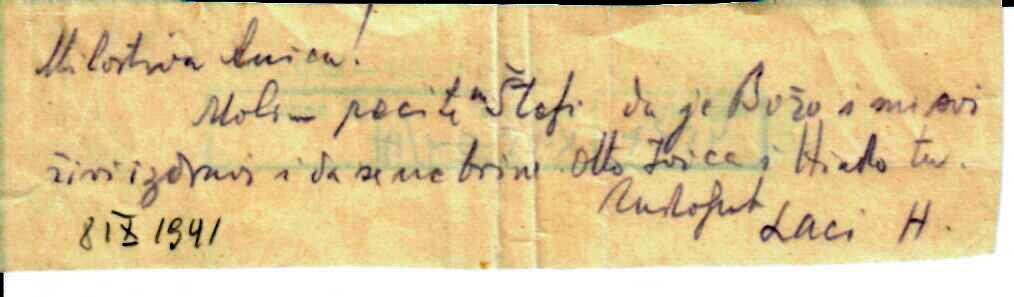 Milostiva Anica!
Molim recite Štefi da je Božo i mi svi
živi i zdravi i da se ne brine. Otto Ivica i Hinko tu.
Laci H.
8 IX 1941